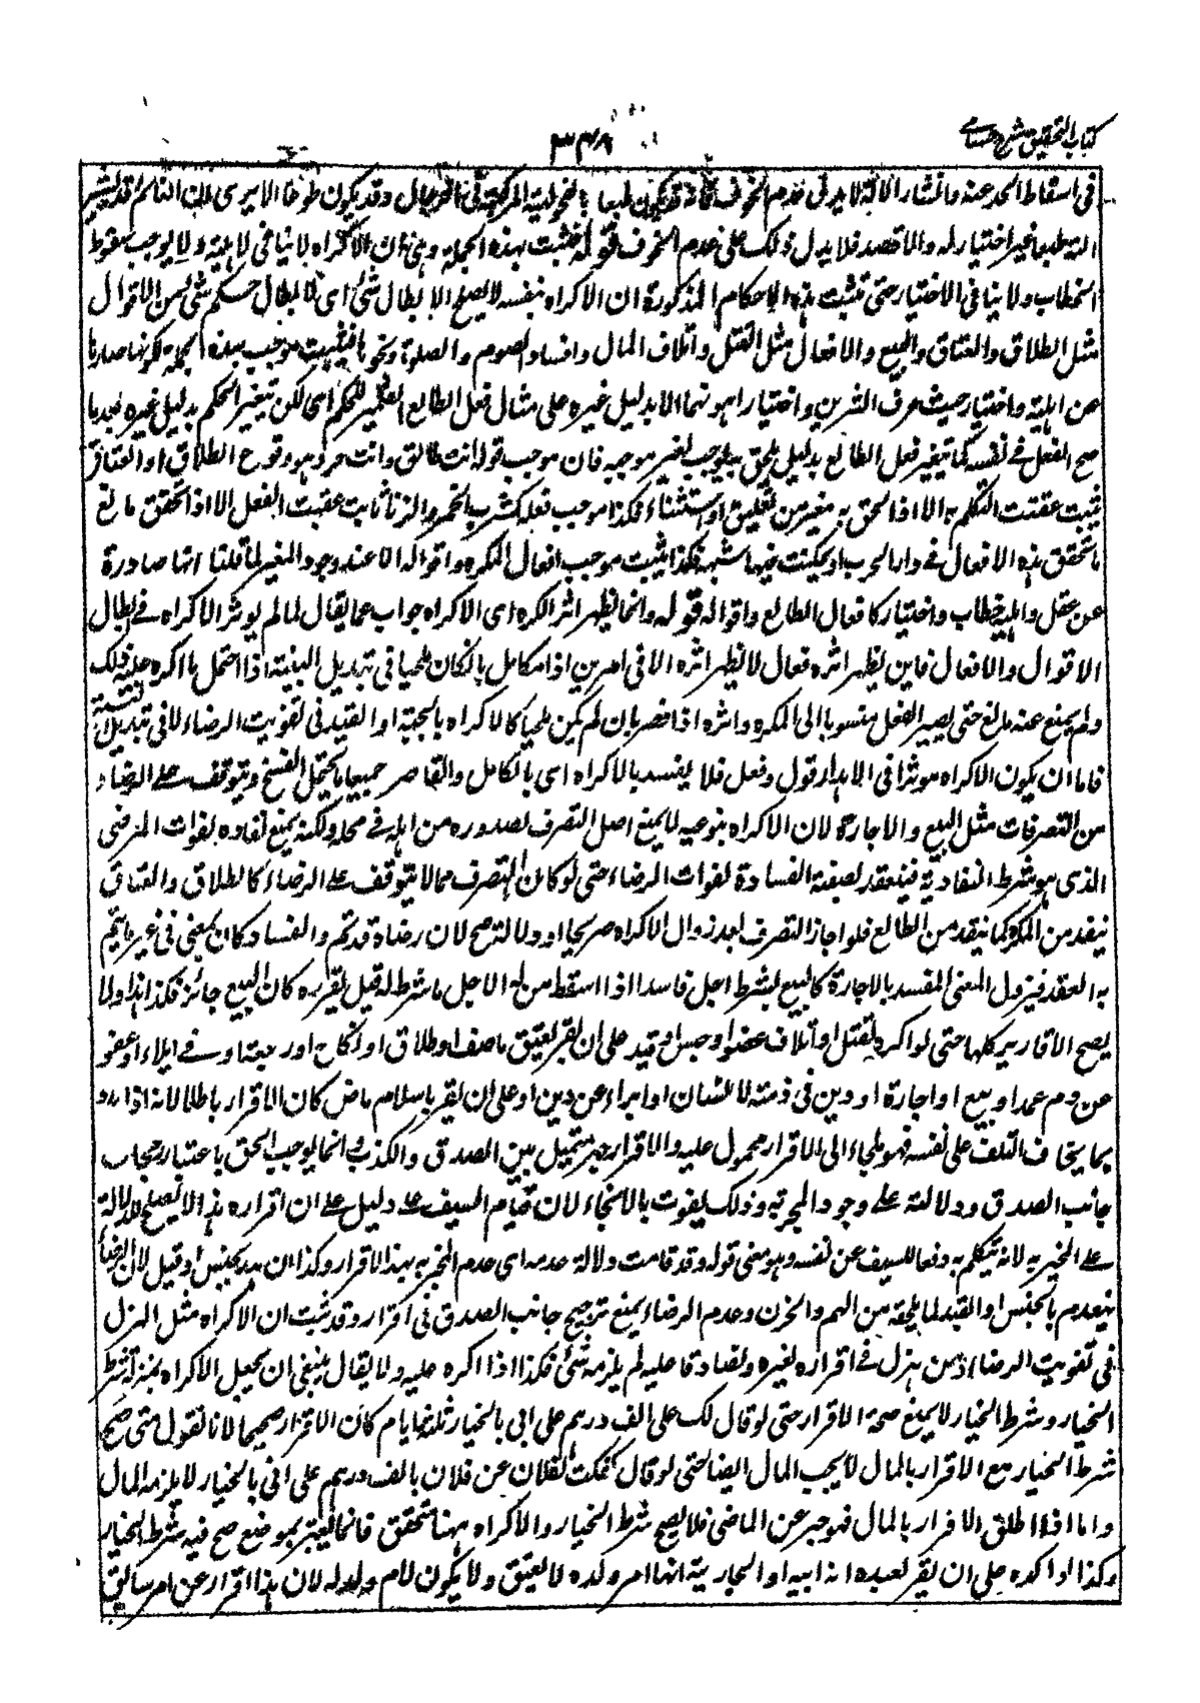 كتاب التحقيق شرح حسامي
٣٣٨
في اسقاط الحد عنه وانتشار الآلة لا يدل على عدم الخوف فانه قد يكون طبعا بالفحولية المركبة في الرجال وقد يكون طوعا الا يرى ان النائم قد ينتشر
آلته طبعا من غير اختيار له ولا قصد فلا يدل ذلك على عدم الخوف قوله فثبت بهذه الجملة وهي ان الاكراه لا ينافي الاهلية ولا يوجب سقوط
الخطاب ولا ينافي الاختيار حتى تثبت هذه الاحكام المذكورة ان الاكراه بنفسه لا يصلح لابطال شئ اي لابطال حكم شئ من الاقوال
مثل الطلاق والعتاق والبيع والافعال مثل القتل واتلاف المال وافساد الصوم والصلوة ونحوها فيثبت موجب هذه الجملة لكونها صادرة
عن اهلية واختيار حيث عرف الشرين واختار اهونهما الا بدليل غيره على مثال فعل الطائع اي لكن تغير الحكم بدليل غيره بعد ما
صح الفعل في نفسه كما يتغير فعل الطائع بدليل يلحق به يوجب تغير موجبه فان موجب قوله انت طالق وانت حر وهو وقوع الطلاق او العتاق
يثبت عقيب التكلم به الا اذا لحق به مغير من تعليق او استثناء فكذا موجب فعله كشرب الخمر والزنا ثابت عقيب الفعل الا اذا تحقق مانع
بان تحقق هذه الافعال في دار الحرب او تمكنت فيها شبهة فكذا يثبت موجب افعال المكره واقواله الا عند وجود المغير لما قلنا انها صادرة
عن عقل واهلية خطاب واختيار كافعال الطائع واقواله قوله وانما يظهر اثر الكره اي الاكراه جواب عما يقال لما لم يوثر الاكراه في ابطال
الاقوال والافعال فاين يظهر اثره فقال لا يظهر اثره الا في امرين اذا تكامل بان كان ملجيا في تبديل النسبة اذا احتمل ما اكره عليه ذلك
ولم يمنع عنه مانع حتى يصير الفعل منسوبا الى المكره واثره اذا قصر بان لم يكن ملجيا كالاكراه بالحبس او القيد في تفويت الرضاء لا في تبديل النسبة
فاما ان يكون الاكراه موثرا في اهدار قول وفعل فلا يفسد بالاكراه اي بالكامل والقاصر جميعا ما يحتمل الفسخ ويتوقف على الرضاء
من التصرفات مثل البيع والاجارة لان الاكراه بنوعيه لا يمنع اصل التصرف لصدوره من اهله في محله ولكنه يمنع نفاذه لفوات الرضى
الذي هو شرط النفاذ فينعقد بصفة الفساد لفوات الرضاء حتى لو كان التصرف مما لا يتوقف على الرضاء كالطلاق والعتاق
ينفذ من المكره كما ينفذ من الطائع فلو اجاز التصرف بعد زوال الاكراه صريحا او دلالة صح لان رضاه قد تم والفساد كان لمعنى في غير ما يتم
به العقد فيزول المعنى المفسد بالاجازة كالبيع بشرط اجل فاسد اذا اسقط من له الاجل ما شرط له قبل تقرره كان البيع جائز فكذا هذا ولا
يصح الاقارير كلها حتى لو اكره بقتل او اتلاف عضو او حبس او قيد على ان يقر بعتق ماض او طلاق او نكاح او رجعة او فئ في ايلاء او عفو
عن دم عمد او بيع او اجارة او دين في ذمته لانسان او ابراء عن دين او على ان يقر باسلام ماض كان الاقرار باطلا لانه اذا هدد
بما يخاف التلف على نفسه فهو ملجاء الى الاقرار محمول عليه والاقرار خبر متميل بين الصدق والكذب وانما يوجب الحق باعتبار رجحان
جانب الصدق ودلالته على وجود المخبر به وذلك يفوت بالالجاء لان قيام السيف على دليل على ان اقراره هذا لا يصلح للدلالة
على المخبر به لانه يتكلم به دفعا للسيف عن نفسه وهو معنى قوله وقد قامت دلالة عدمه اي عدم المخبر به بهذا الاقرار وكذا ان هدد بحبس او قيد لان الرضاء
ينعدم بالحبس او القيد لما يلحقه من الهم والحزن وعدم الرضاء يمنع ترجيح جانب الصدق في اقراره وقد ثبت ان الاكراه مثل الهزل
في تفويت الرضاء ومن هزل في اقراره لغيره وتصادقا عليه لم يلزمه شئ فكذا اذا اكره عليه ولا يقال ينبغي ان يجعل الاكراه بمنزلة شرط
الخيار وشرط الخيار لا يمنع صحة الاقرار حتى لو قال لك على الف درهم على اني بالخيار ثلثة ايام كان الاقرار صحيحا لانا نقول متى صح
شرط الخيار مع الاقرار بالمال لا يجب المال ايضا حتى لو قال كفلت لفلان عن فلان بالف درهم على اني بالخيار لا يلزمه المال
واما اذا اطلق الاقرار بالمال فهو خبر عن الماضي فلا يصح شرط الخيار والاكراه ههنا متحقق فانما يعتبر بموضع صح فيه شرط الخيار
وكذا اذا اكره على ان يقر لعبده انه ابنه او الجارية انها ام ولده لا يعتق ولا يكون لام ولد له لان هذا اقرار عن امر سابق